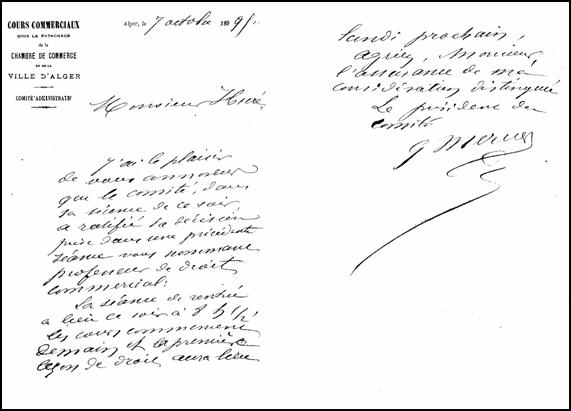 COURS COMMERCIAUX
SOUS LE PATRONAGE
de la
CHAMBRE DE COMMERCE
ET DE LA
VILLE D'ALGER
COMITÉ D'ADMINISTRATION
Alger, le 7 octobre 1895.
Monsieur
J'ai le plaisir
de vous annoncer
que le comité, dans
sa séance de ce soir,
a ratifié la décision
prise dans une précédente
séance vous nommant
professeur de droit
commercial.
La séance de rentrée
a lieu ce soir à 8 h 1/2
les cours commencent
demain et la première
leçon de droit aura lieu
lundi prochain,
agréez, Monsieur,
l'assurance de ma
considération distinguée
Le président du
comité